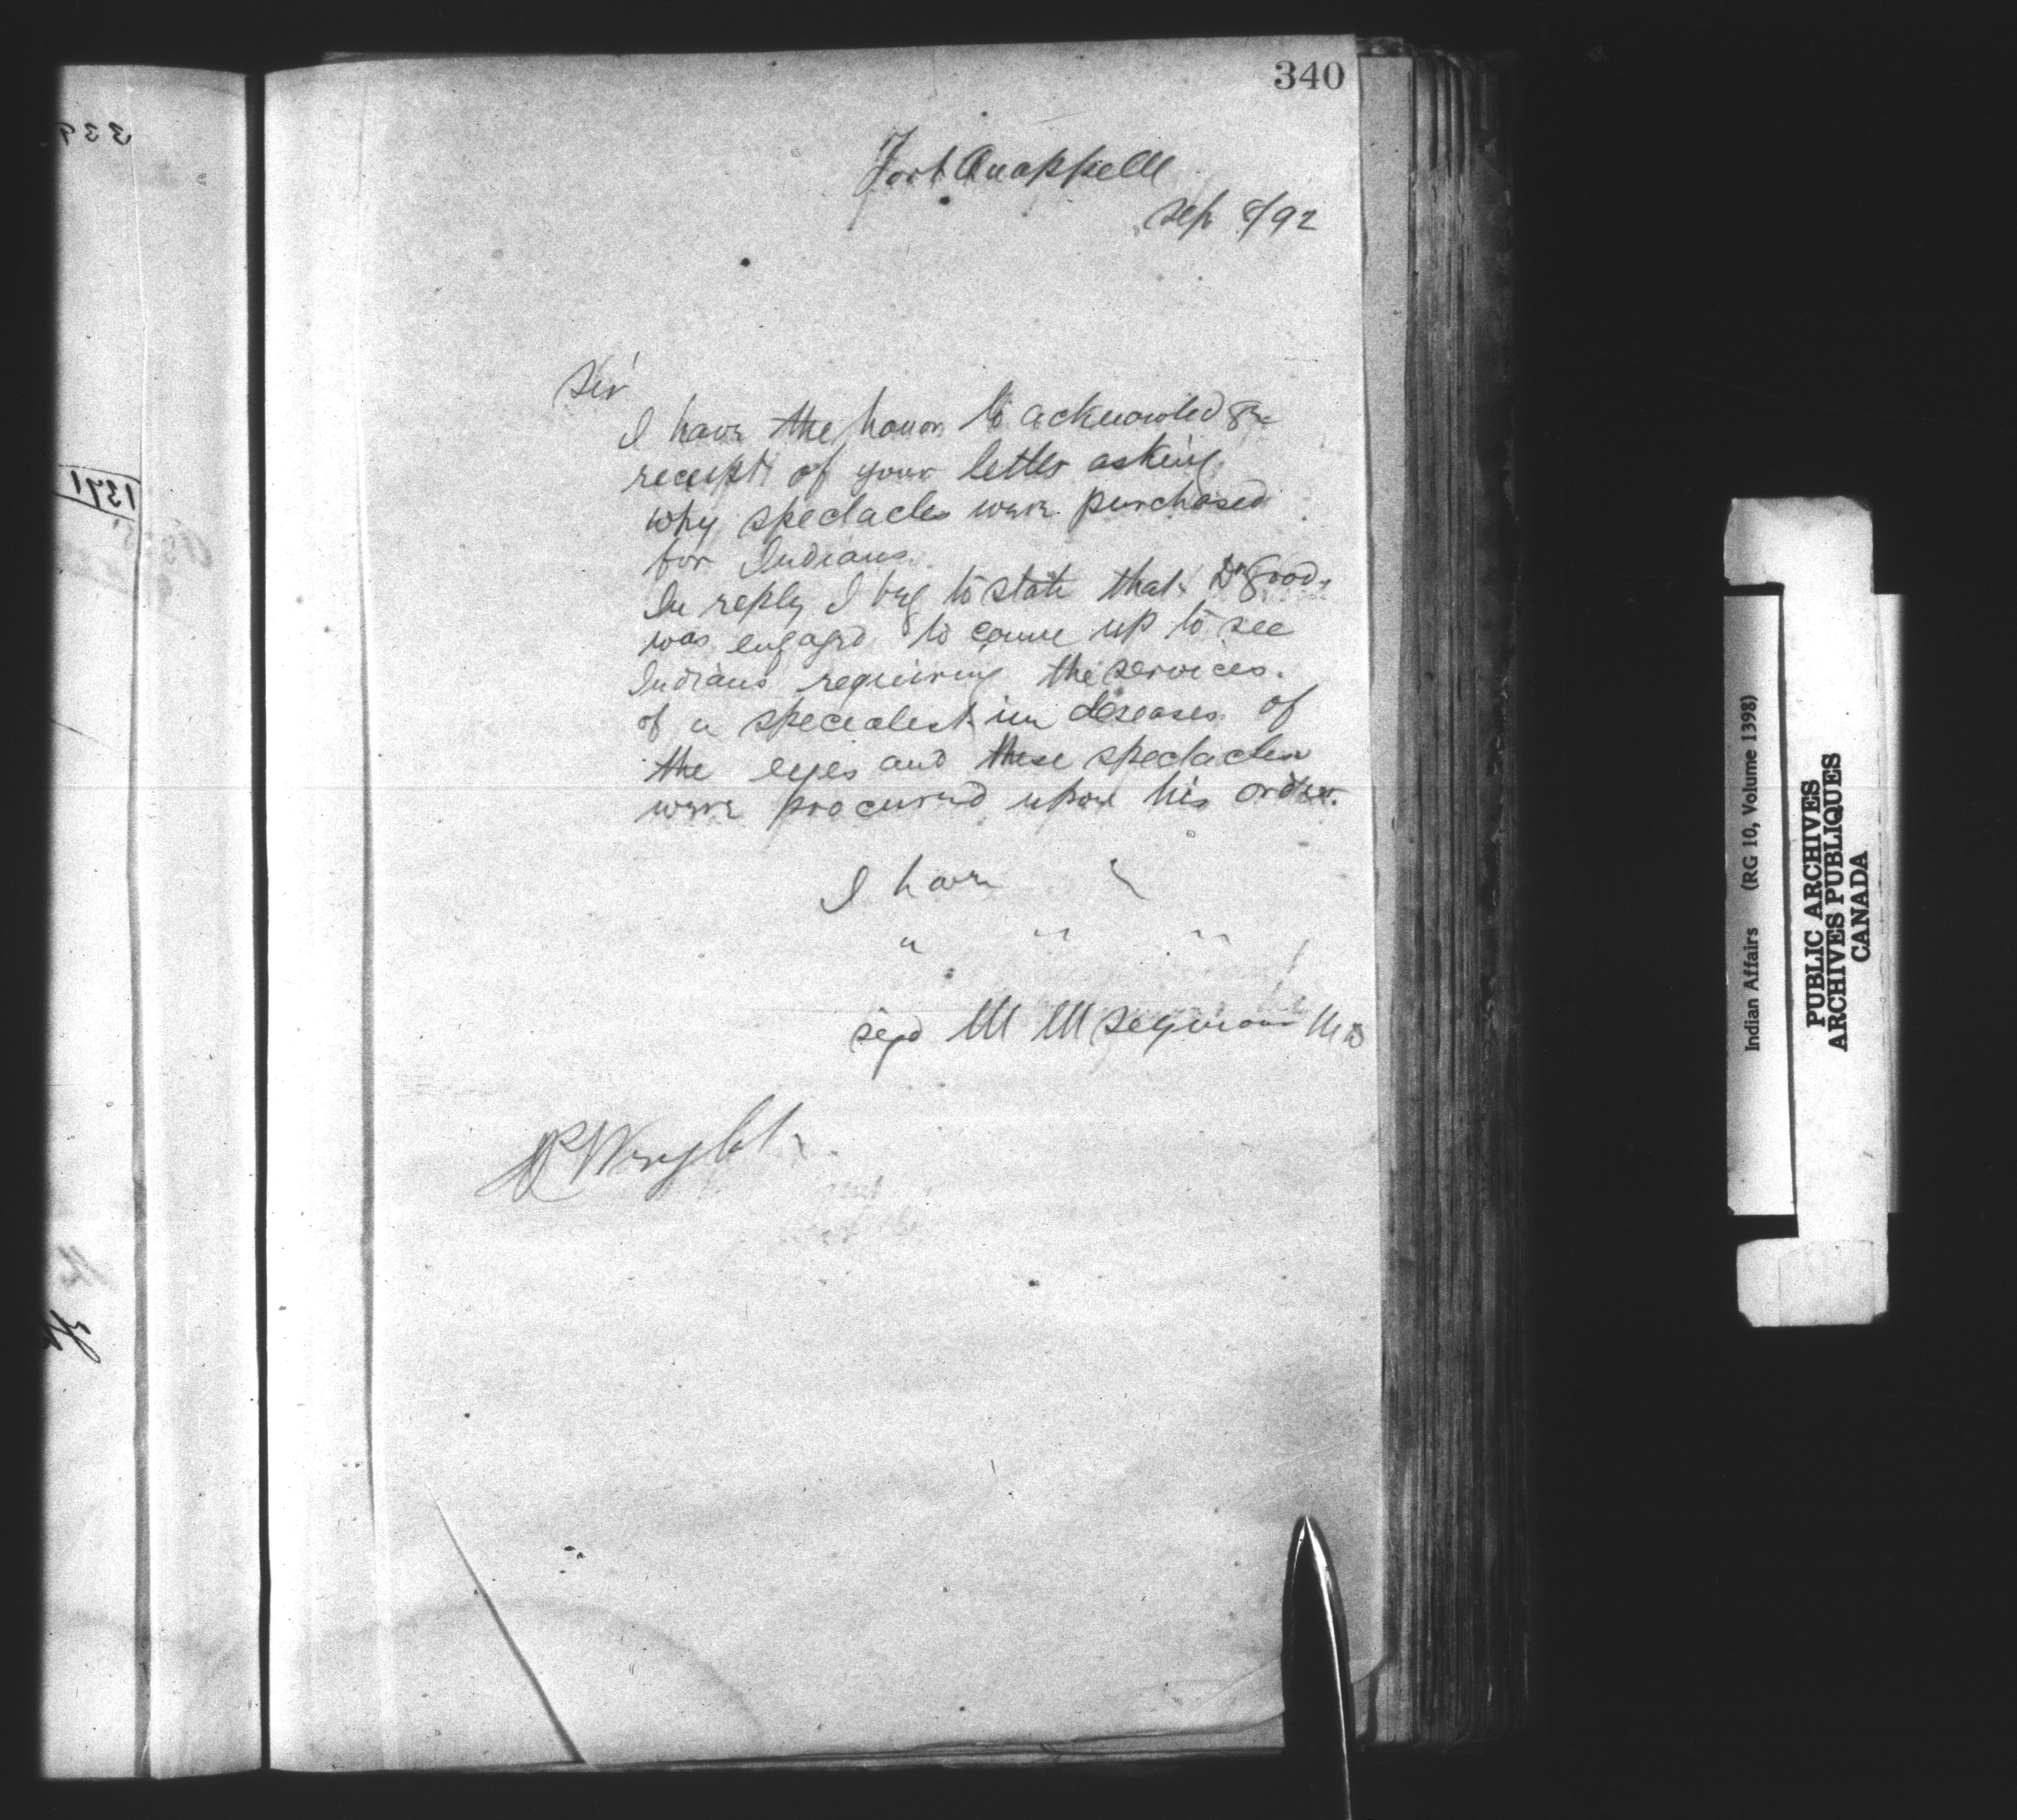 340
Fort Quappelle
Sep 8/92
Sir
I have the honor to acknowledge
receipt of your letter asking
why spectacles were purchased
for Indians.
In reply I beg to state that Dr Good
was engaged to come up to see
Indians requiring the services
of a specialist in diseases of
the eyes and these spectacles
were procured upon his order.
I have
" " "
sigd M M Seymour MD
Wright
339
1371
Indian Affairs (RG 10, Volume 1398)
PUBLIC ARCHIVES
ARCHIVES PUBLIQUES
CANADA